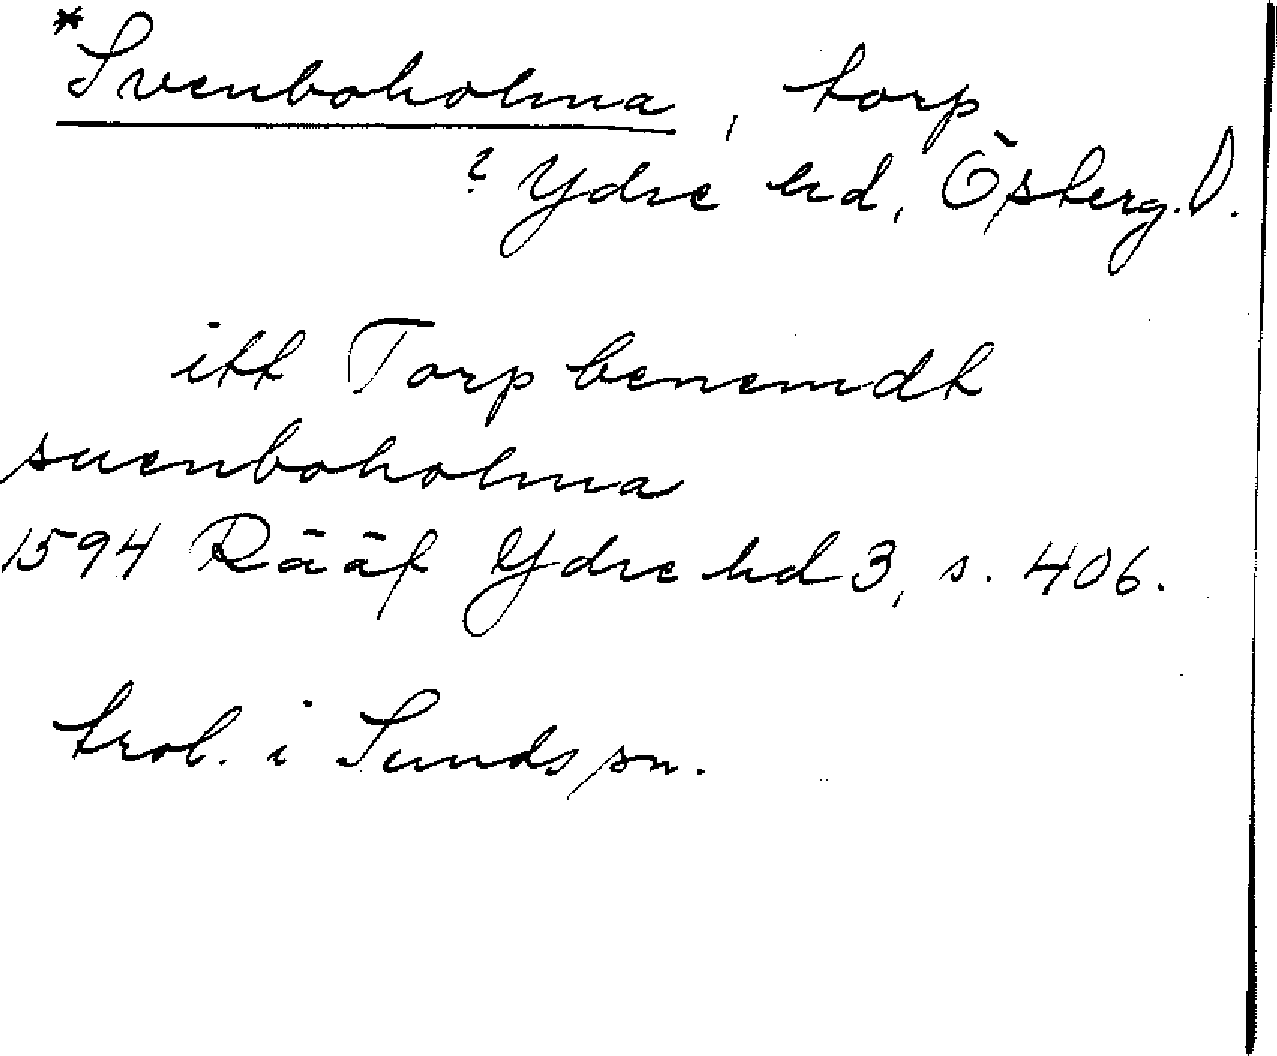 *Svenboholma, torp
? Ydre hd, Österg. l.
itt Torp benemdt
suenboholma
1594 Rääf Ydre hd 3, s. 406.
trol. i Sunds sn.